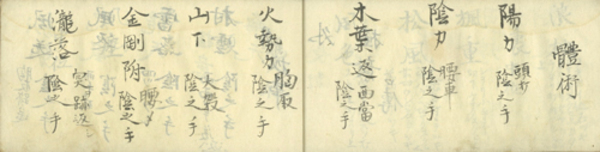 體術
陽力 頭打 陰之手
陰力 腰車 陰之手
木葉返 面當 陰之手
火勢力 胸取 陰之手
山下 大殺 陰之手
金剛附 腰 陰之手
瀧落 陰之手